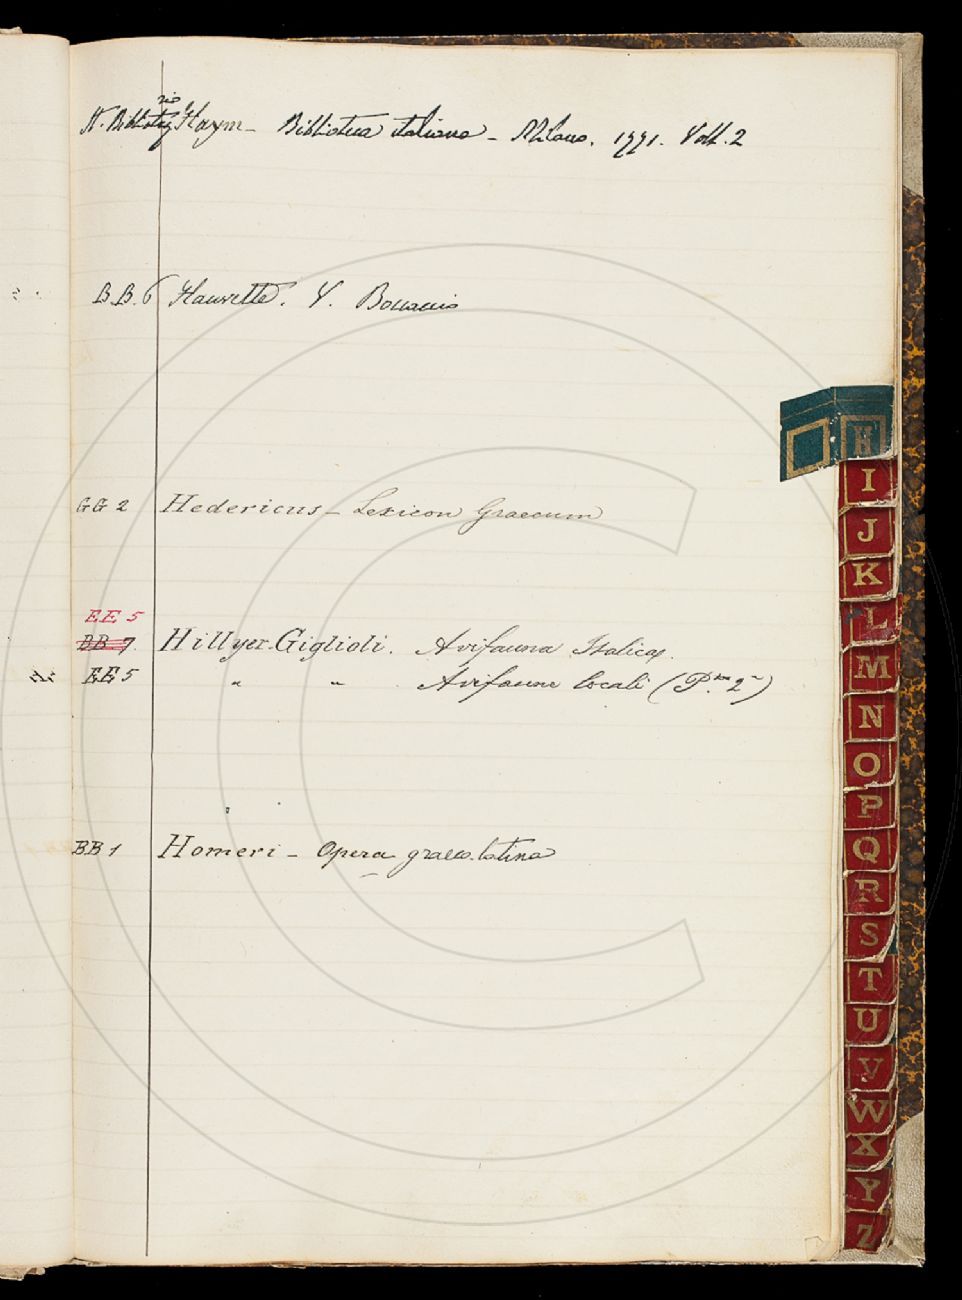 rio
St. Bibliotec Haym - Biblioteca italiana - Milano. 1771. Voll. 2
B.B. 6 Hauvette. V. Boccaccio
GG 2 Hedericus - Lexicon Graecum
EE 5
BB 7 Hillyer-Giglioli. Avifauna Italica.
EE 5 " " Avifaune locali (P.te 2a)
BB 1 Homeri - Opera graeco-latina
H
I
J
K
L
M
N
O
P
Q
R
S
T
U
V
W
X
Y
Z